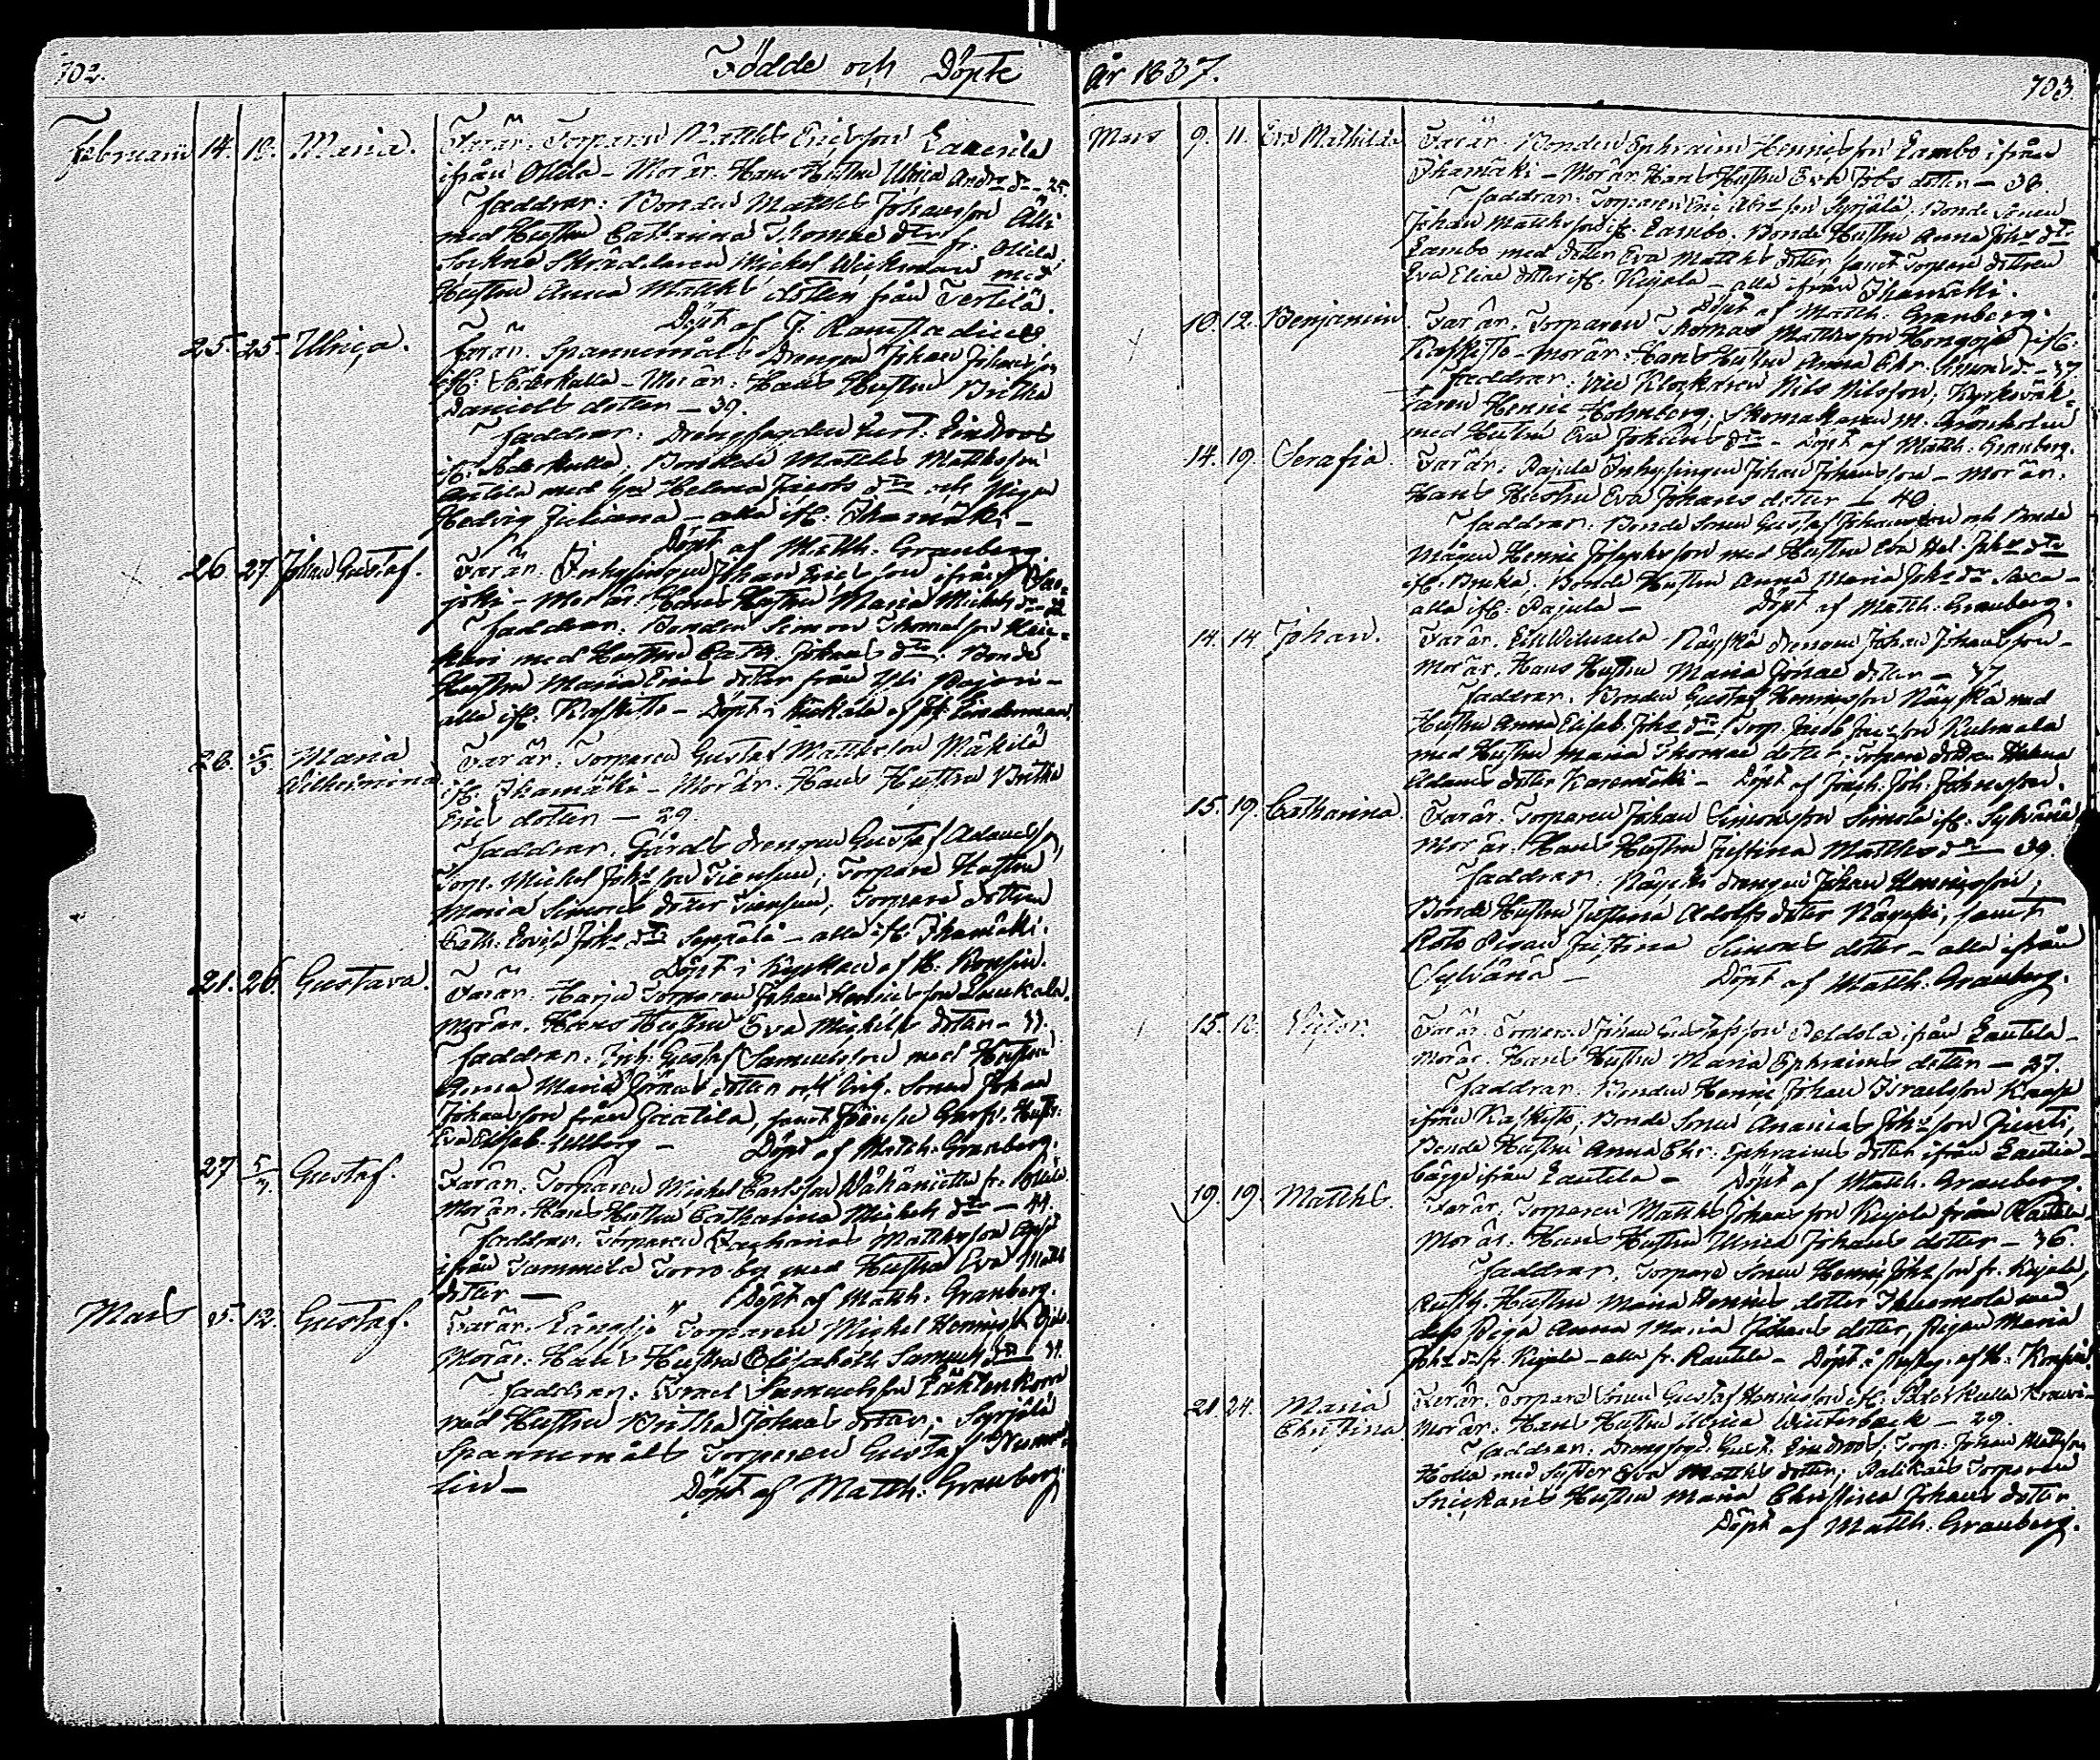 702.
Födde och Döpte
Februarii 14. 18. Maria.
Far är. Torparen Matths Ericsson
ifrån Ollila - Mor är. Hans Hustru Ulrica Andrs dr - 25.
Faddrar: Bonden Matths Johansson Ålli
med Hustru Catharina Thomae dtr fr. Ollila,
Sockne Skräddaren Michel Wickman med
Hustru Anna Matths dotter från Terttilä.
Döpt af J. Ramstadius
25. 25. Ulrica.
Far är. Spannemåls Drengen Johan Johansson
if: Söderkulla - Mor är: Hans Hustru Britha
Daniels dotter - 39.
Faddrar: Drengfogden Gust: Lindroos
if: Söderkulla, Bonden Matths Mattsson
Anttila med Hu Helena Jacobs dtr och Pigan
Hedvig Juliana - alla if: Ihamäki -
Döpt af Matth. Granberg.
26 27 Johan Gustaf.
Far är. Inhysingen Johan Ericsson ifrån
joki - Mor är: Hans Hustru Maria Michels dr -
Faddrar: Bonden Simon Thomasson
med Hustru Cath. Johans dtr. Bonde
Hustru Maria Erics dotter från Yli
alla if: Raskitto - Döpt i af Joh: Lindeman.
28. 5/3 Maria
Wilhelmina
Far är. Torparen Gustaf Mattsson Mäkilä
if: Ihamäki - Mor är. Hans Hustru Britha
Erics dotter - 29.
Faddrar. Gårds drengen Gustaf Adamsson,
Torp. Michel Johsson Tiensuu, Torpare Hustru
Maria Simons dotter Tiensuu, Torpare dottren
Cath. Lovisa Johs dtr Seppälä - alla if. Ihamäki.
Döpt i Kyrkan af H. Konsin.
21. 26. Gustava.
Far är. Harju Torparen Johan Henricsson
Mor är. Hans Hustru Eva Michels dotter - 33.
Faddrar. Gustaf Samuelsson med Hustru
Anna Maria Jonas dotter och Sonen Johan
Johansson från Jaatila, samt
Eva Elisab. Ullberg - Döpt af Matth. Granberg.
27 5/3. Gustaf.
Far är. Torparen Michel Carlsson Wähäniittu fr. Ollila
Mor är. Hans Hustru Catharina Michels dtr - 44.
Faddrar. Torparen Zacharias Mattsson
ifrån Tammela Torro by med Hustru Eva Matts
dotter - Döpt af Matth. Granberg.
Mars 5. 12. Gustaf.
Far är. Långsjö Torparen Michel Henricss
Mor är. Hans Hustru Elisabeth Samuels dtr 39.
Faddrar: Israel Samuelsson
med Hustru Britha Johans dotter, Syrjälä
Spannemåls Torparen Gustaf
Döpt af Matth: Granberg.
År 1837.
703.
Mars 9. 11. Eva Mathilda
Far är. Bonden Ephraim Henricsson Lambo ifrån
Ihamäki - Mor är Hans Hustru Eva Jobs dotter - 38.
Faddrar. Torparen Eric Abrsson Syrjälä. Bonde Sonen
Johan Mattsson if: Lambo. Bonde Hustru Anna Johs dtr
Lambo med dotter Eva Matths dotter, samt Torpare dottren
Eva Eliae dotter if. Kujala - alla ifrån Ihamäki.
Döpt af Matth. Granberg.
10. 12. Benjamin
Far är. Torparen Thomas Mattsson Hongoja if:
Raskitto - Mor är: Hans Hustru Anna Chr. Simons dr - 37
Faddrar: Vice Klockaren Nils Nilsson, Kyrkoväk-
taren Henric Holmberg, Skomakaren M. Grönholm
med Hustru Eva Johans dtr - Döpt af Matth. Granberg.
14. 19. Serafia
Far är. Pajula Inhysingen Johan Johansson - Mor är.
Hans Hustru Eva Johans dotter - 40
Faddrar. Bonde Sonen Gustaf Johansson och Bonde
Mågen Henric Josephsson med Hustru Eva Hel. Johs dtr
if. Bonde Hustru Anna Maria Johs dr Saxa -
alla if: Pajula - Döpt af Matth. Granberg.
14. 14 Johan.
Far är. Näyskä drengen Johan Johansson -
Mor är. Hans Hustru Maria Jonae dotter - 37
Faddrar. Bonden Gustaf Henricsson Näyskä med
Hustru Anna Elisab. Johs dtr, Torp. Jacob Kulmala
med Hustru Maria Thomae dotter, Torpare dottren Helena
Adams dotter - Döpt af Joh: Johnsson.
15. 19. Catharina
Far är. Torparen Johan Simonsson Simola if: Sylvänä
Mor är. Hans Hustru Justina Matths dr - 39.
Faddrar. drengen Johan Henricsson,
Bonde Hustru Justina Adolfs dotter samt
Rote Pigan Justina Simons dotter - alla ifrån
Sylvänä - Döpt af Matth. Granberg.
15. 18. Victor.
Far är. Torparen Johan Gustafsson Peldola ifrån Lautela -
Mor är. Hans Hustru Maria Ephraims dotter - 27.
Faddrar. Bonden Henric Johan Israelsson
ifrån Raskitto, Bonde Sonen Ananias Johsson Junti,
Bonde Hustru Anna Chr. Ephraims dotter ifrån
ifrån Lautela - Döpt af Matth. Granberg.
19. 19. Matths.
Far är. Torparen Matths Johansson Kujala från Rautela
Mor är. Hans Hustru Ulrica Johans dotter - 36.
Faddrar, Torpare Sonen Henric Johsson fr. Kujala,
Hustru Maria Henrics dotter med
dess Piga Anna Maria Johans dotter, Pigan Maria
Johs dr fr. Kujala - alla fr. Rautela - Döpt af H: Konsin.
21 24. Maria
Christina
Far är. Torpare Sonen Gustaf Henricsson if: Söderkulla
Mor är. Hans Hustru Ulrica Winterbeck - 29.
Faddrar. Drengfogd. Gust. Lindroos, Torp. Johan Mattsson
med Syster Eva Matths dotter, Torparen
Snickaris Hustru Maria Christina Johans dotter.
Döpt af Matth. Granberg.